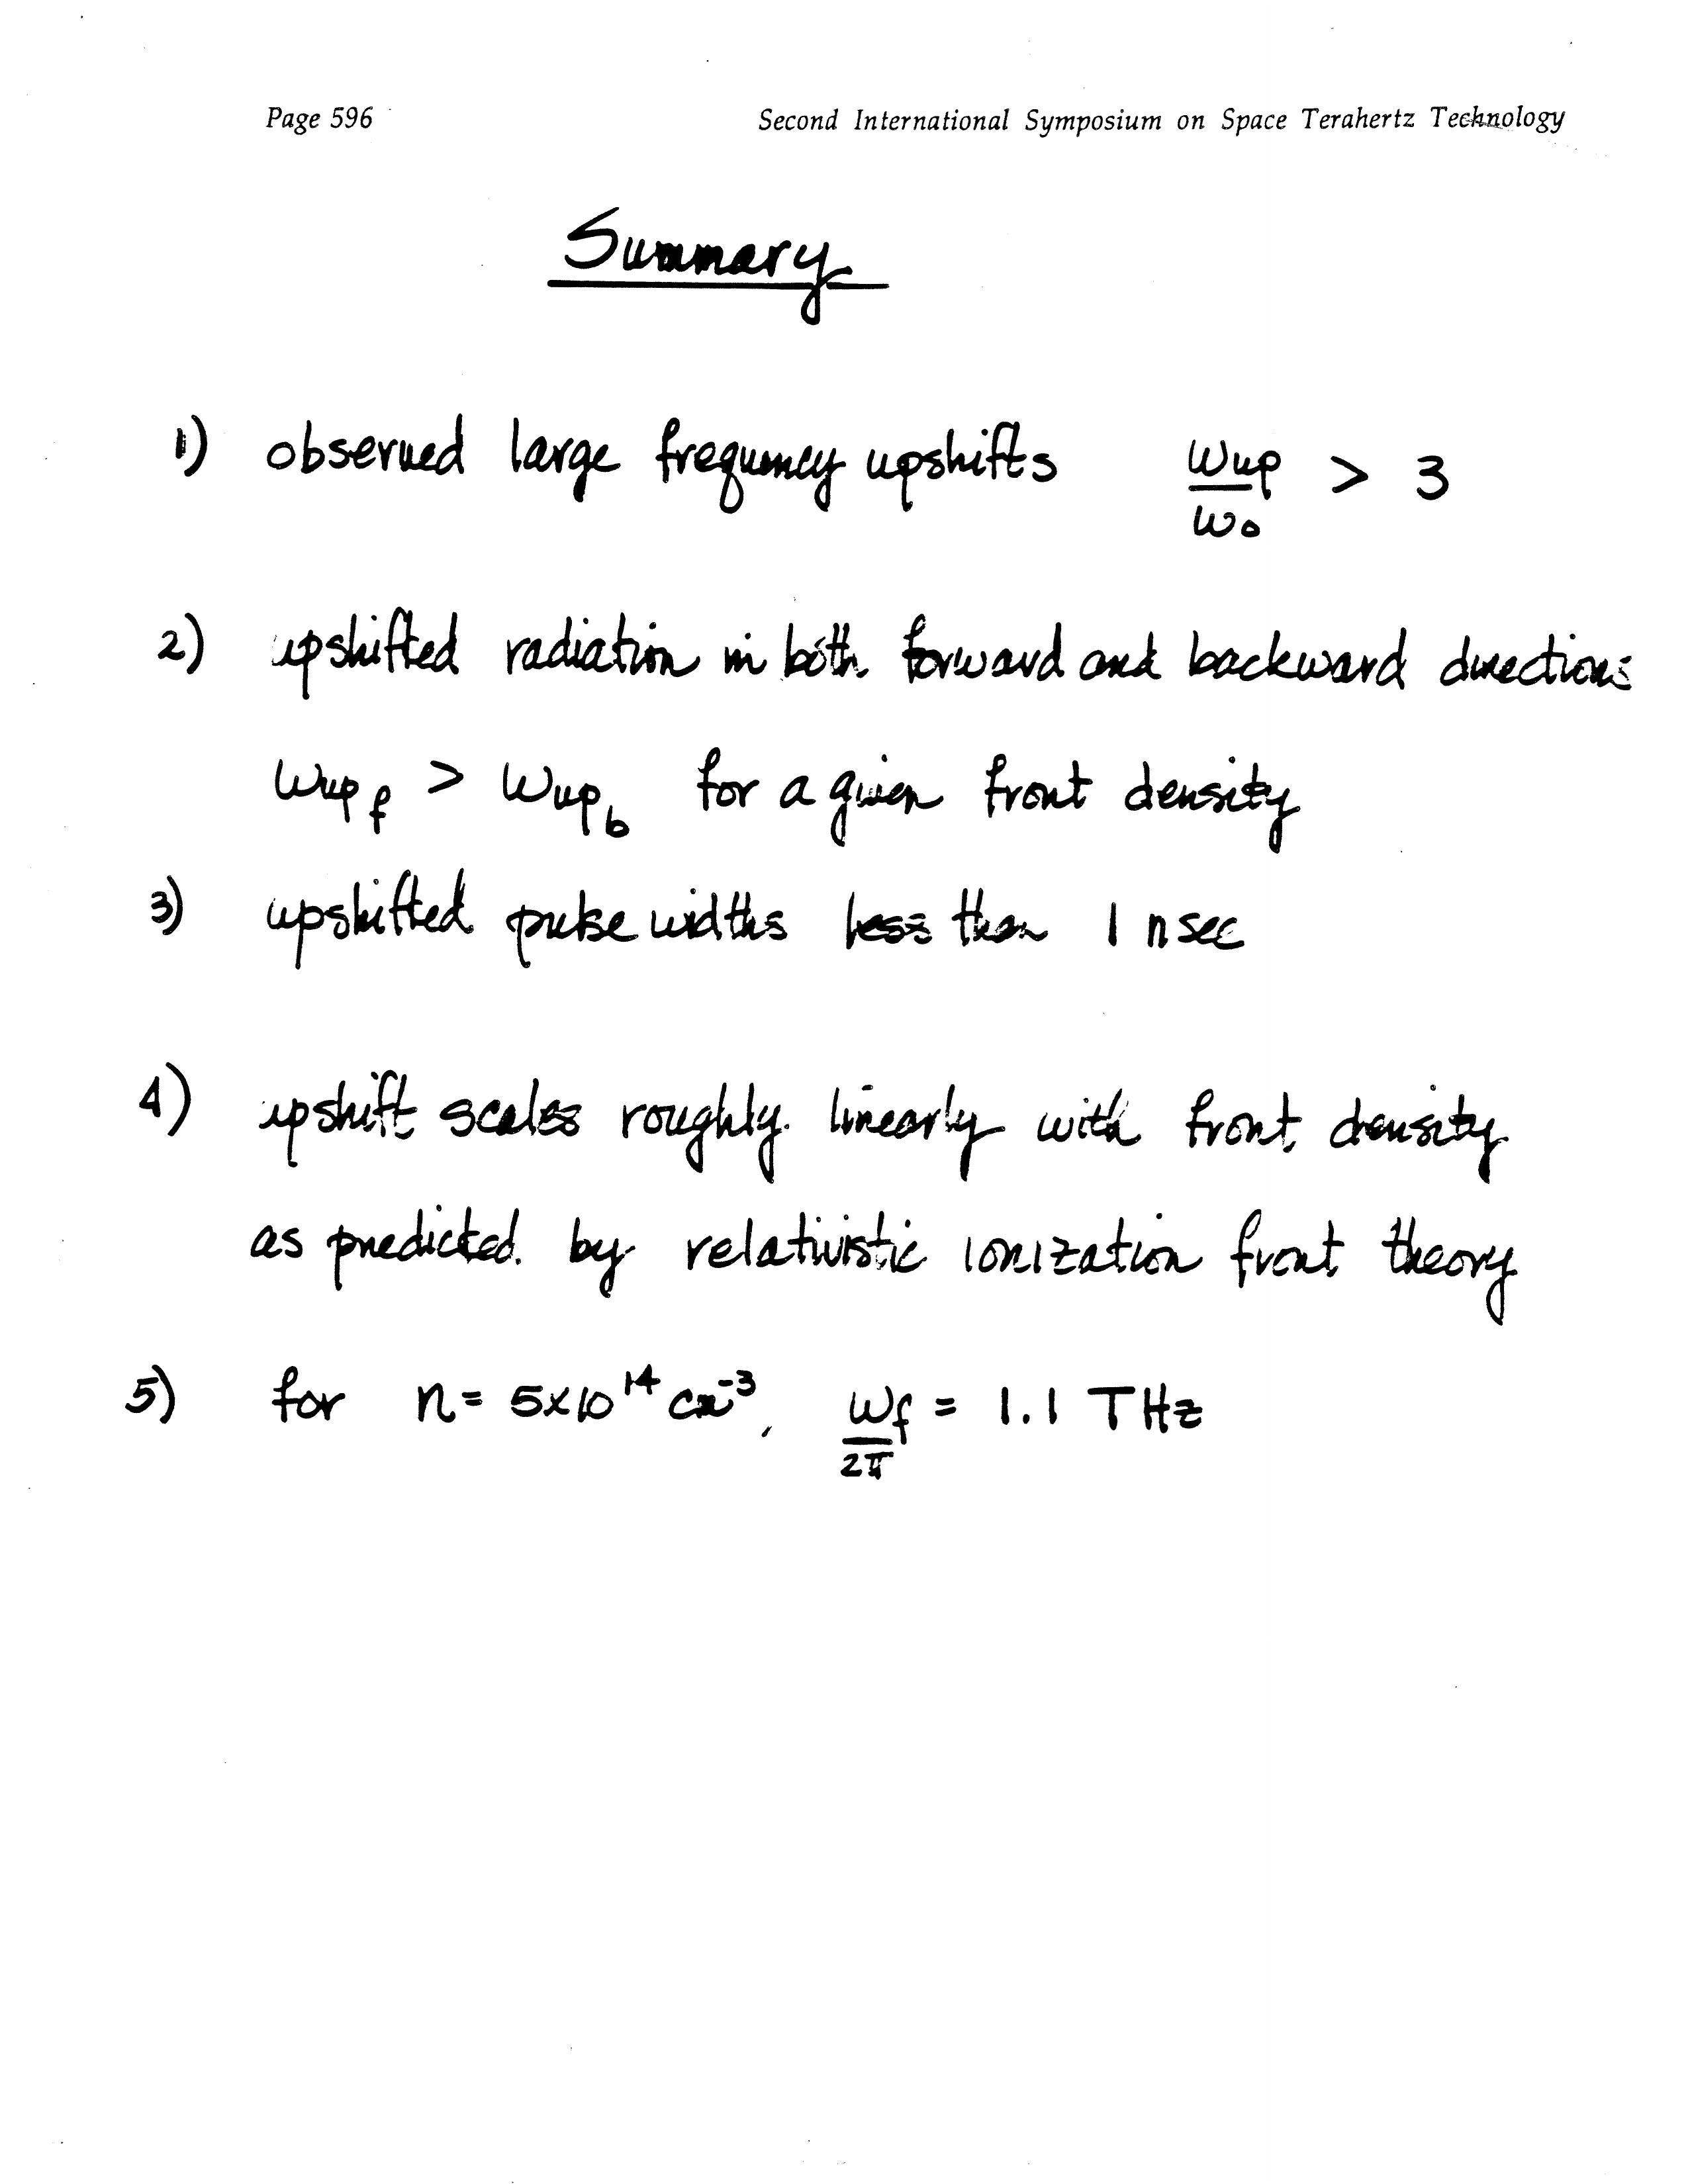 Page 596 Second International Symposium on Space Terahertz Technology
Summary
1) observed large frequency upshifts ωup/ω0 > 3
2) upshifted radiation in both forward and backward directions
ωup_f > ωup_b for a given front density
3) upshifted pulse widths less than 1 nsec
4) upshift scales roughly linearly with front density
as predicted by relativistic ionization front theory
5) for n = 5x10^14 cm^-3, ωf/2π = 1.1 THz